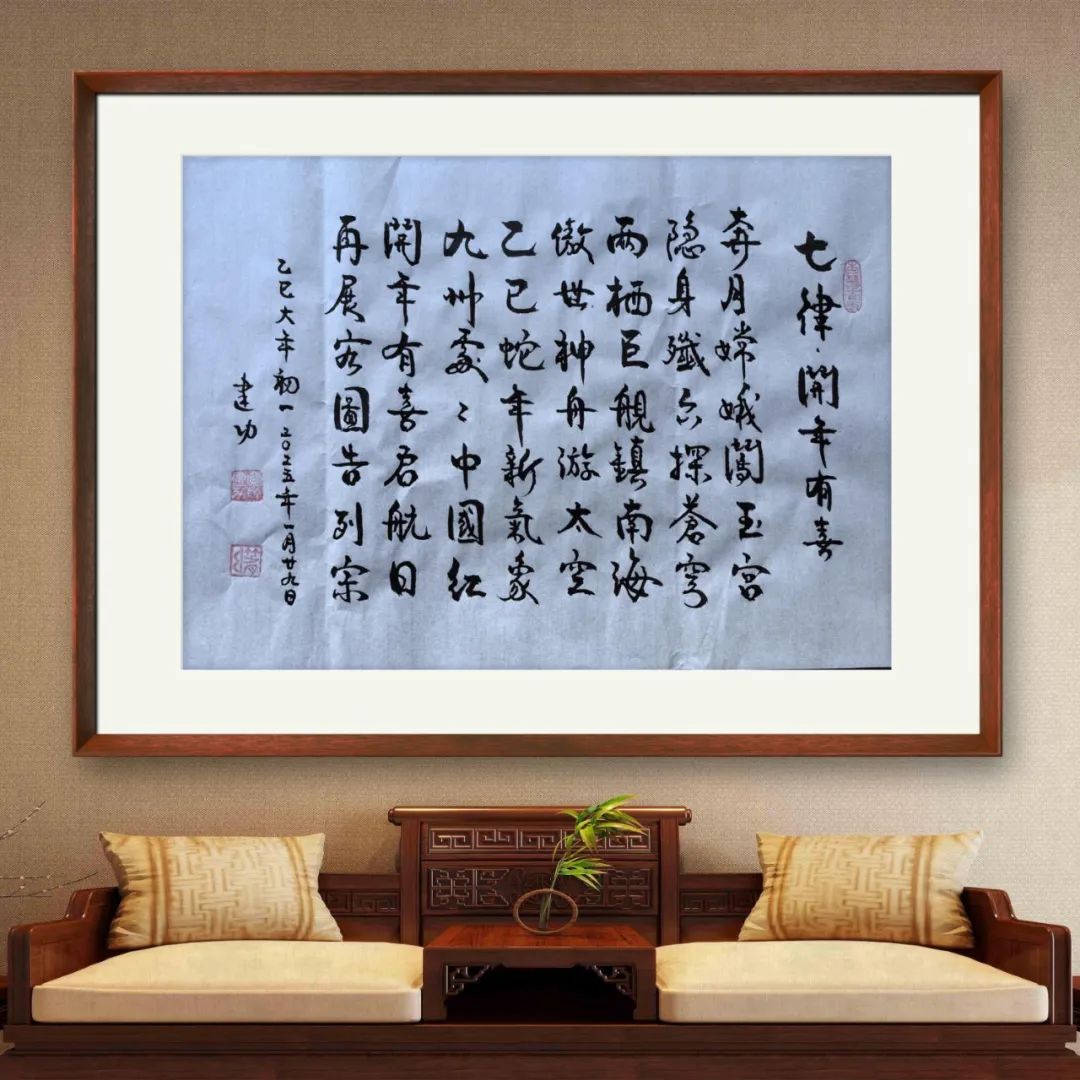 七律·開年有喜
奔月嫦娥闖玉宫
隐身殲六探蒼穹
两栖巨舰鎮南海
傲世神舟游太空
乙巳蛇年新氣象
九州處々中國红
開年有喜君航日
再展宏圖告列宗
乙巳大年初一二〇二五年一月廿九日
建功